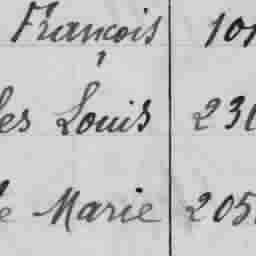 François 101
les Louis 230
le Marie 205